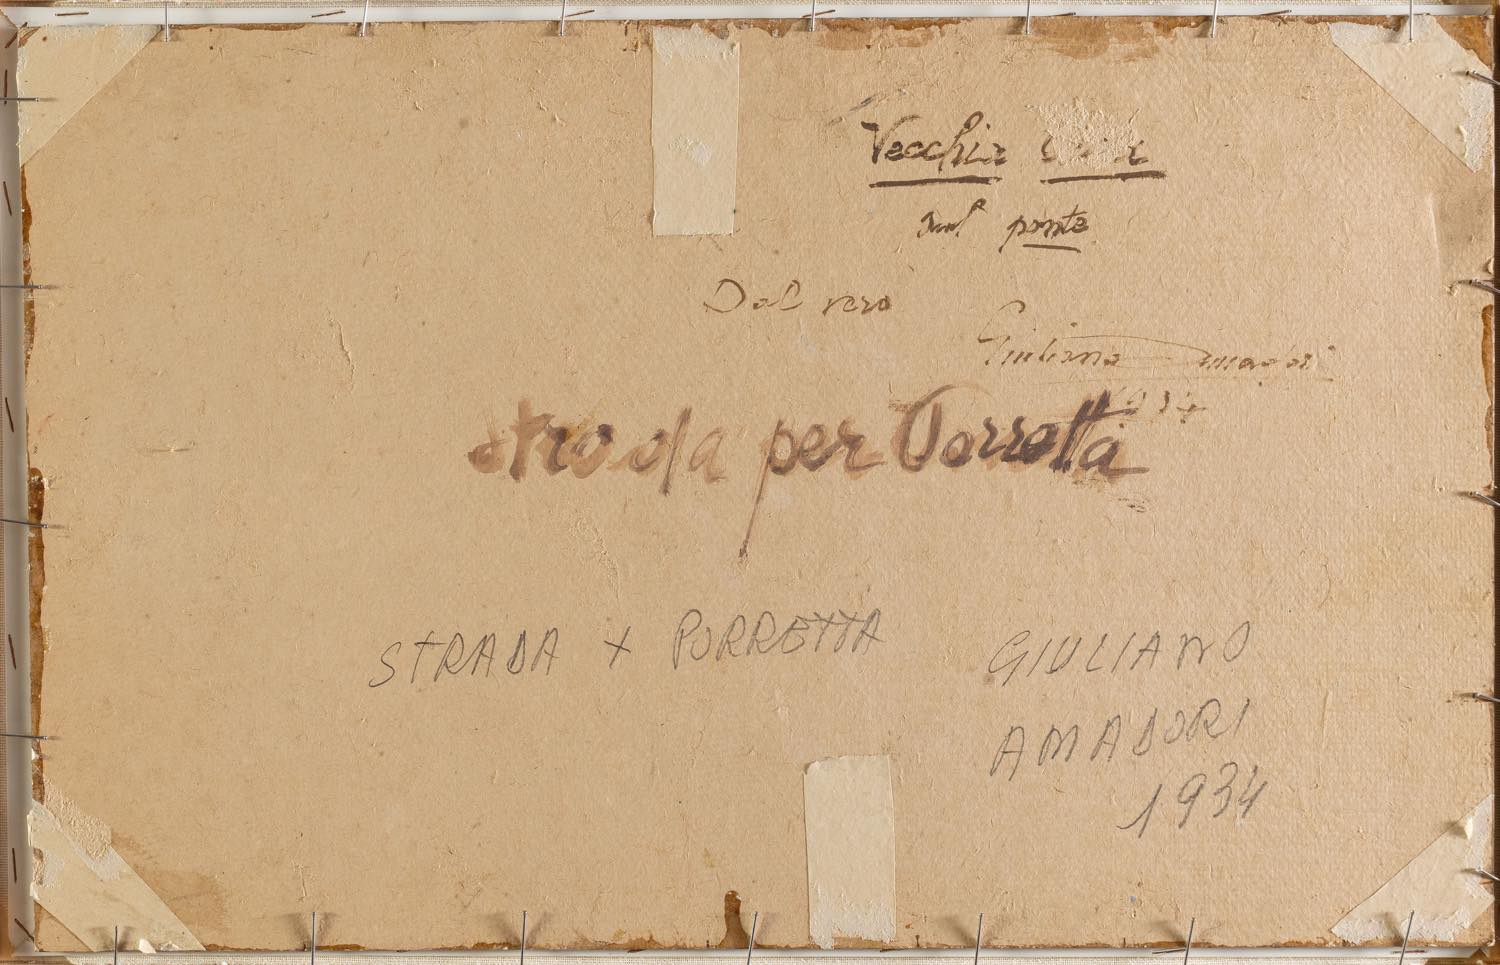 Vecchia
sul ponte
Dal vero
Giuliano Amadori
1934
strada per Porretta
STRADA X PORRETTA
GIULIANO
AMADORI
1934